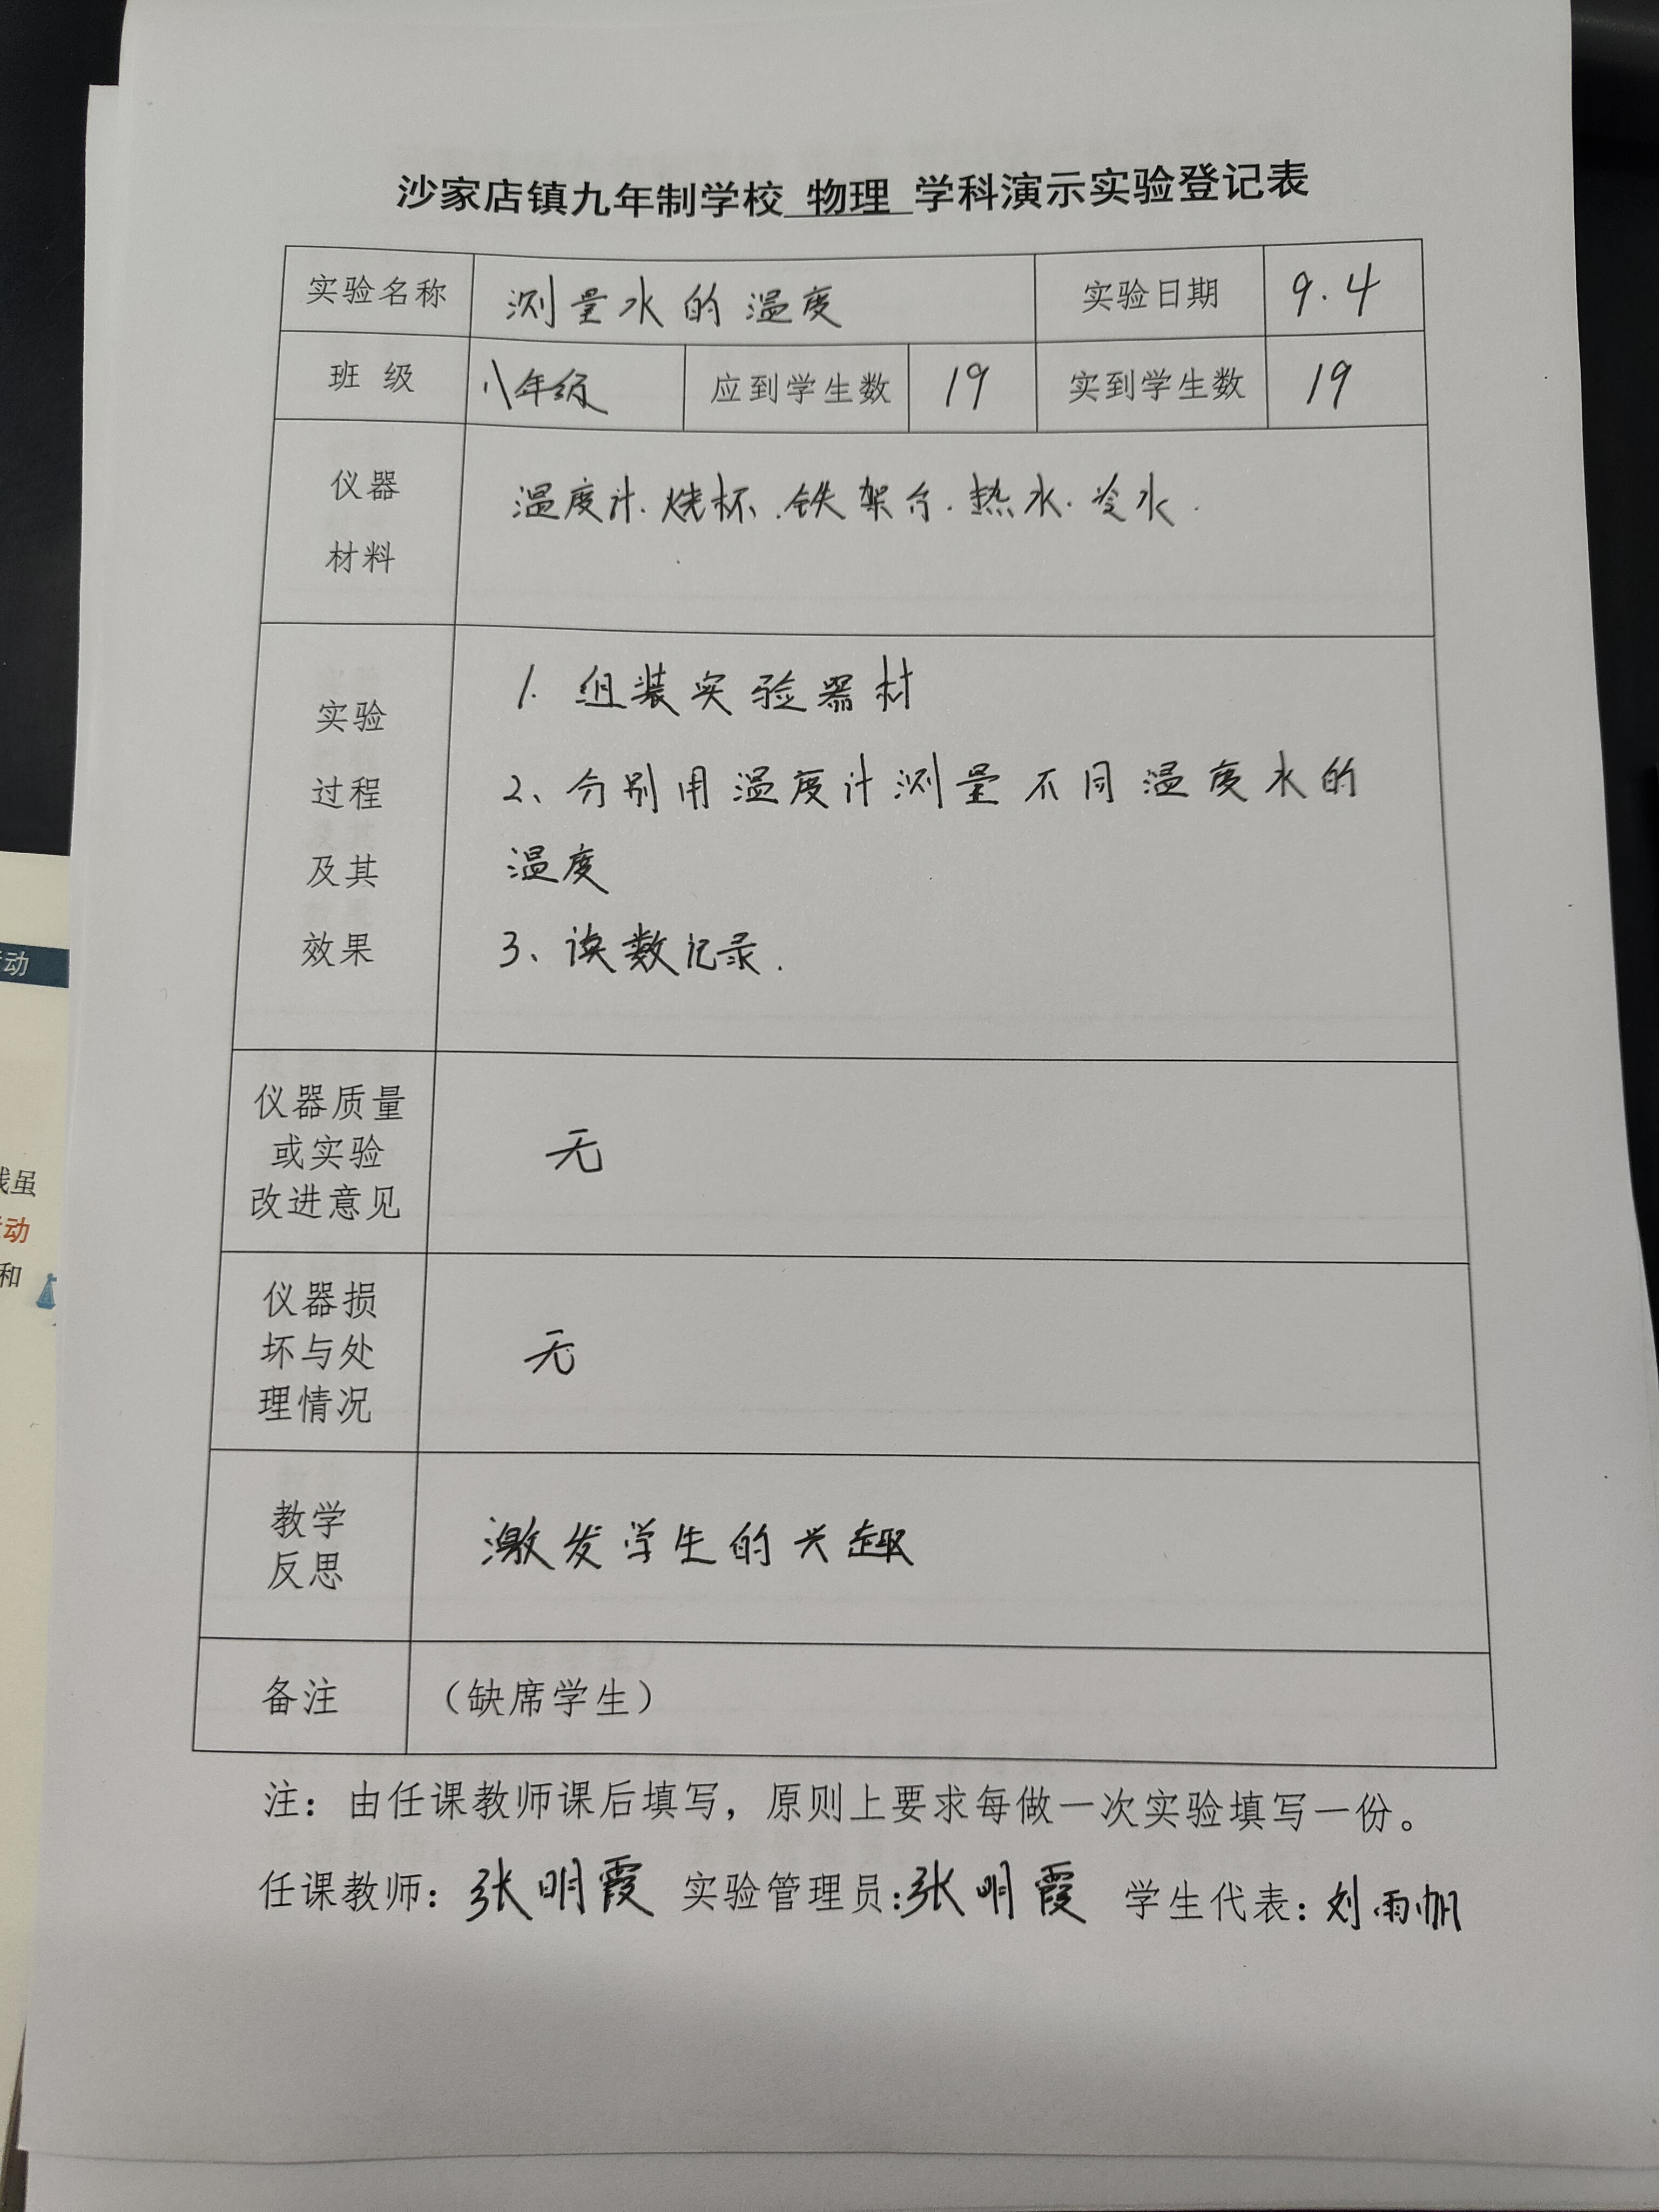 沙家店镇九年制学校 物理 学科演示实验登记表
实验名称 测量水的温度 实验日期 9.4
班 级 八年级 应到学生数 19 实到学生数 19
仪器
材料
温度计.烧杯.铁架台.热水.冷水.
实验
过程
及其
效果
1. 组装实验器材
2、分别用温度计测量不同温度水的
温度
3、读数记录.
仪器质量
或实验
改进意见
无
仪器损
坏与处
理情况
无
教学
反思
激发学生的兴趣
备注 (缺席学生)
注：由任课教师课后填写，原则上要求每做一次实验填写一份。
任课教师：张明霞 实验管理员:张明霞 学生代表：刘雨帆
动
虽
动
和